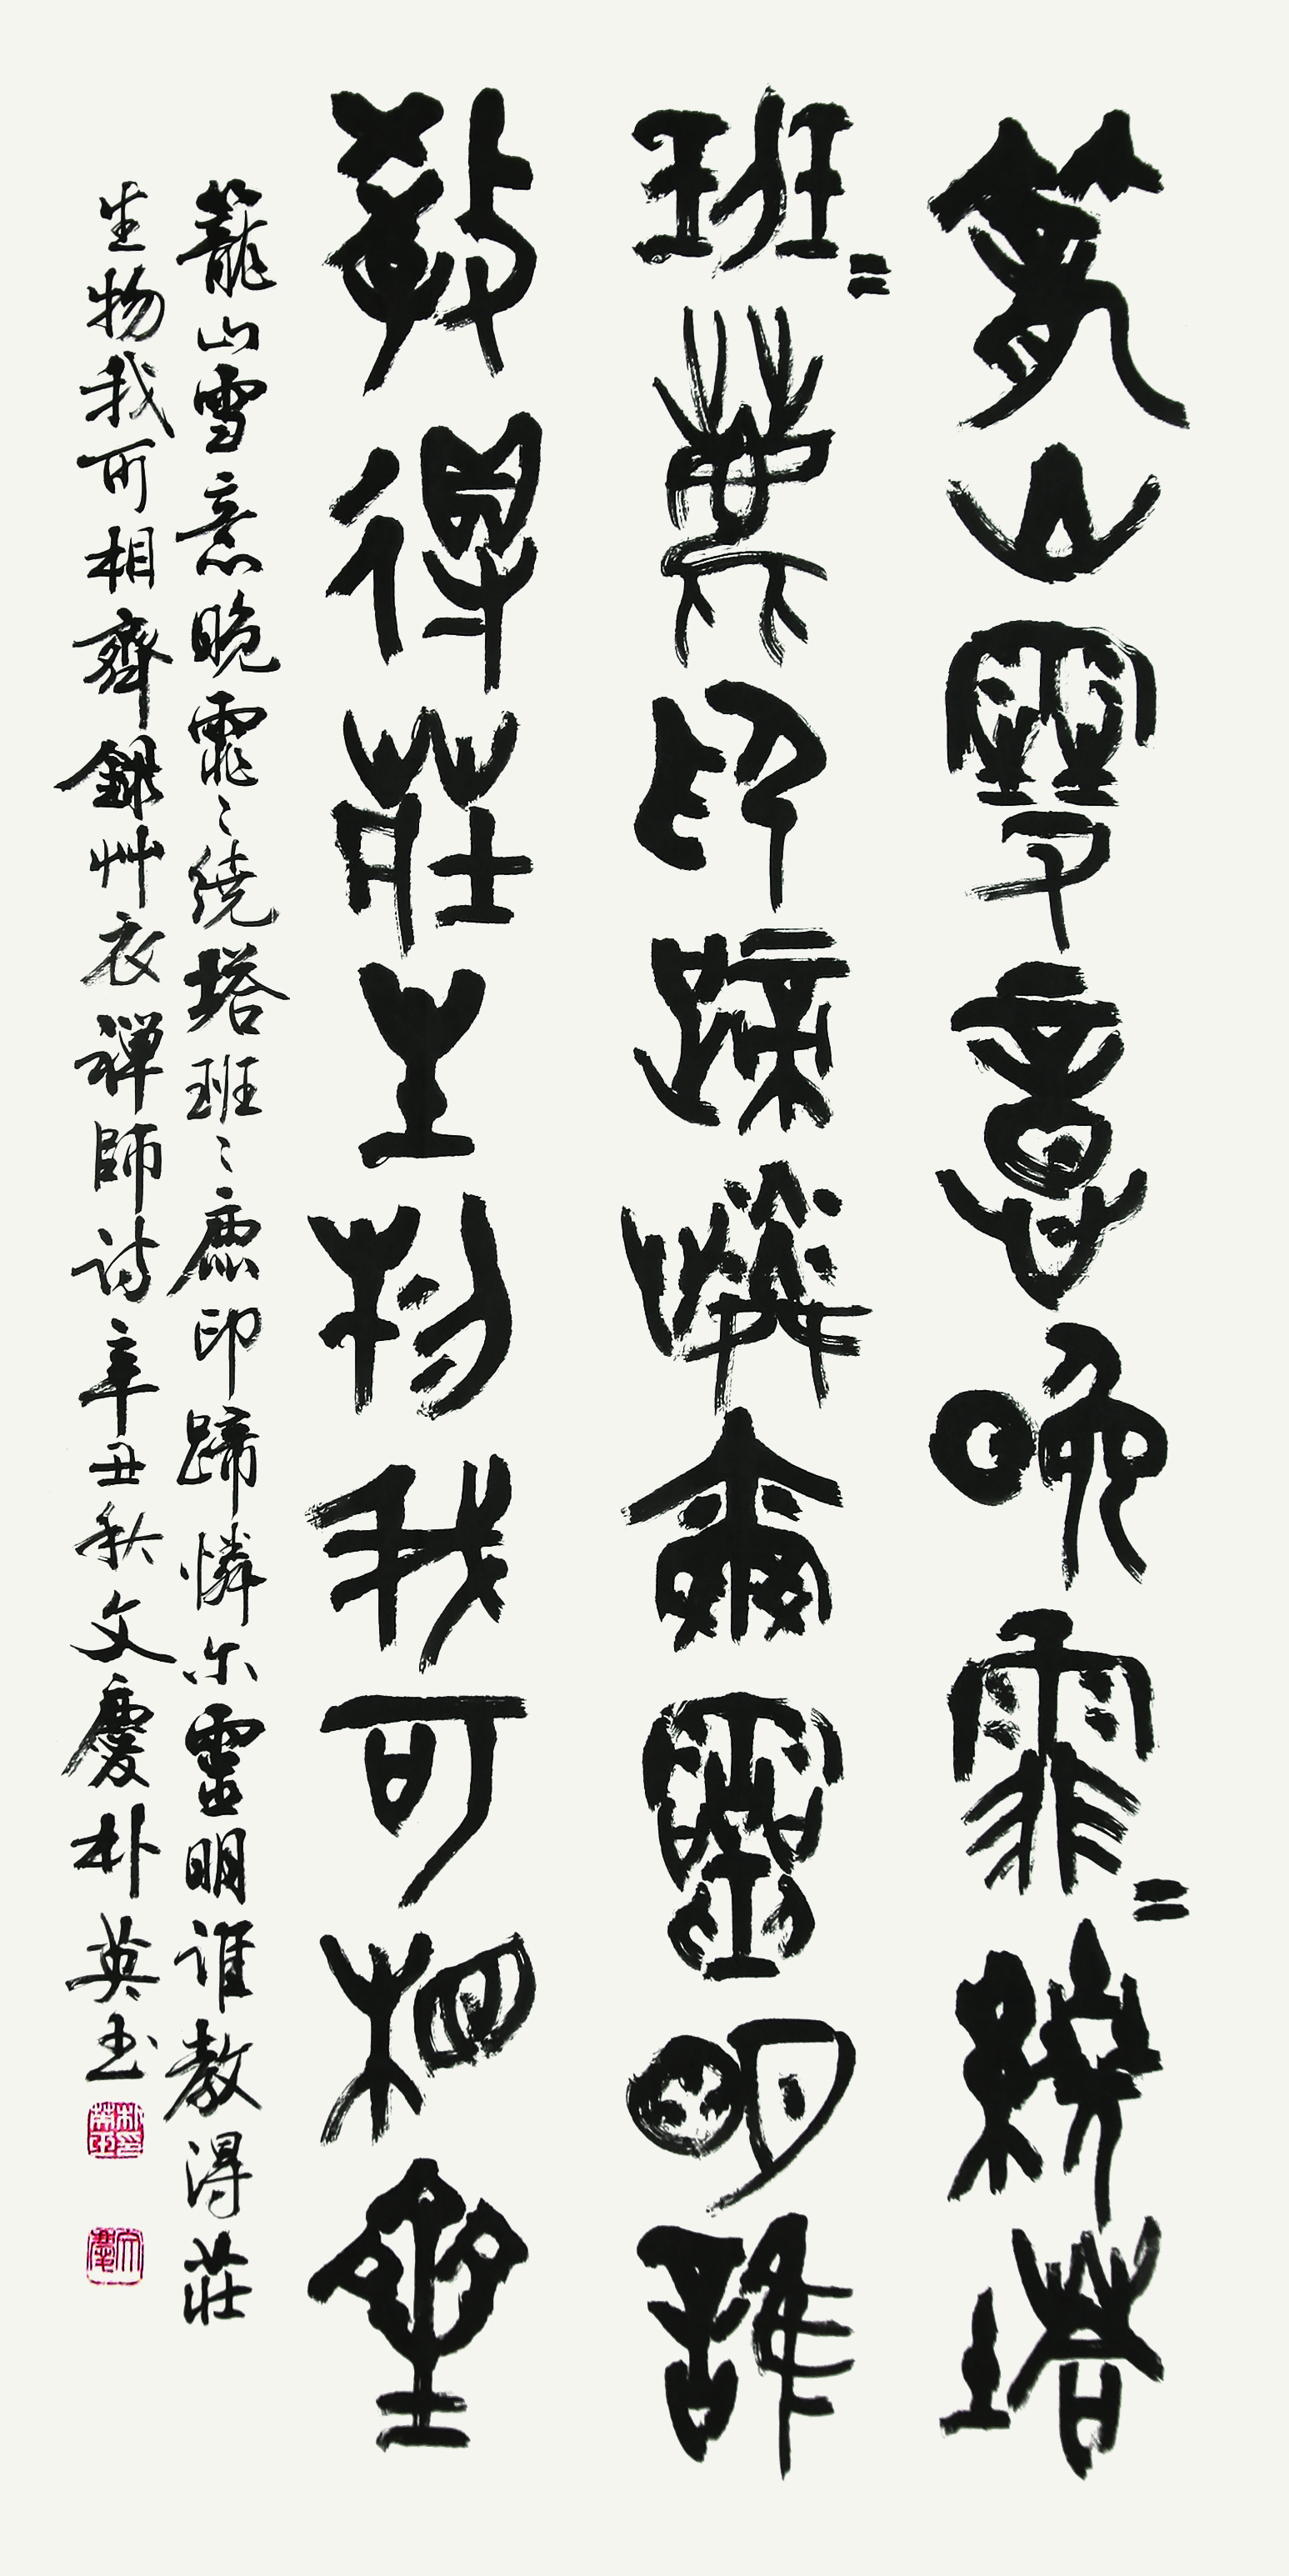 籠山雪意晚霏〻繞塔
班〻鹿印蹄憐爾靈明誰
教得莊生物我可相齊
籠山雪意晚霏〻繞塔班〻鹿印蹄憐尔靈明誰教得莊
生物我可相齊 錄艸衣禪師詩 辛丑秋文慶朴英玉